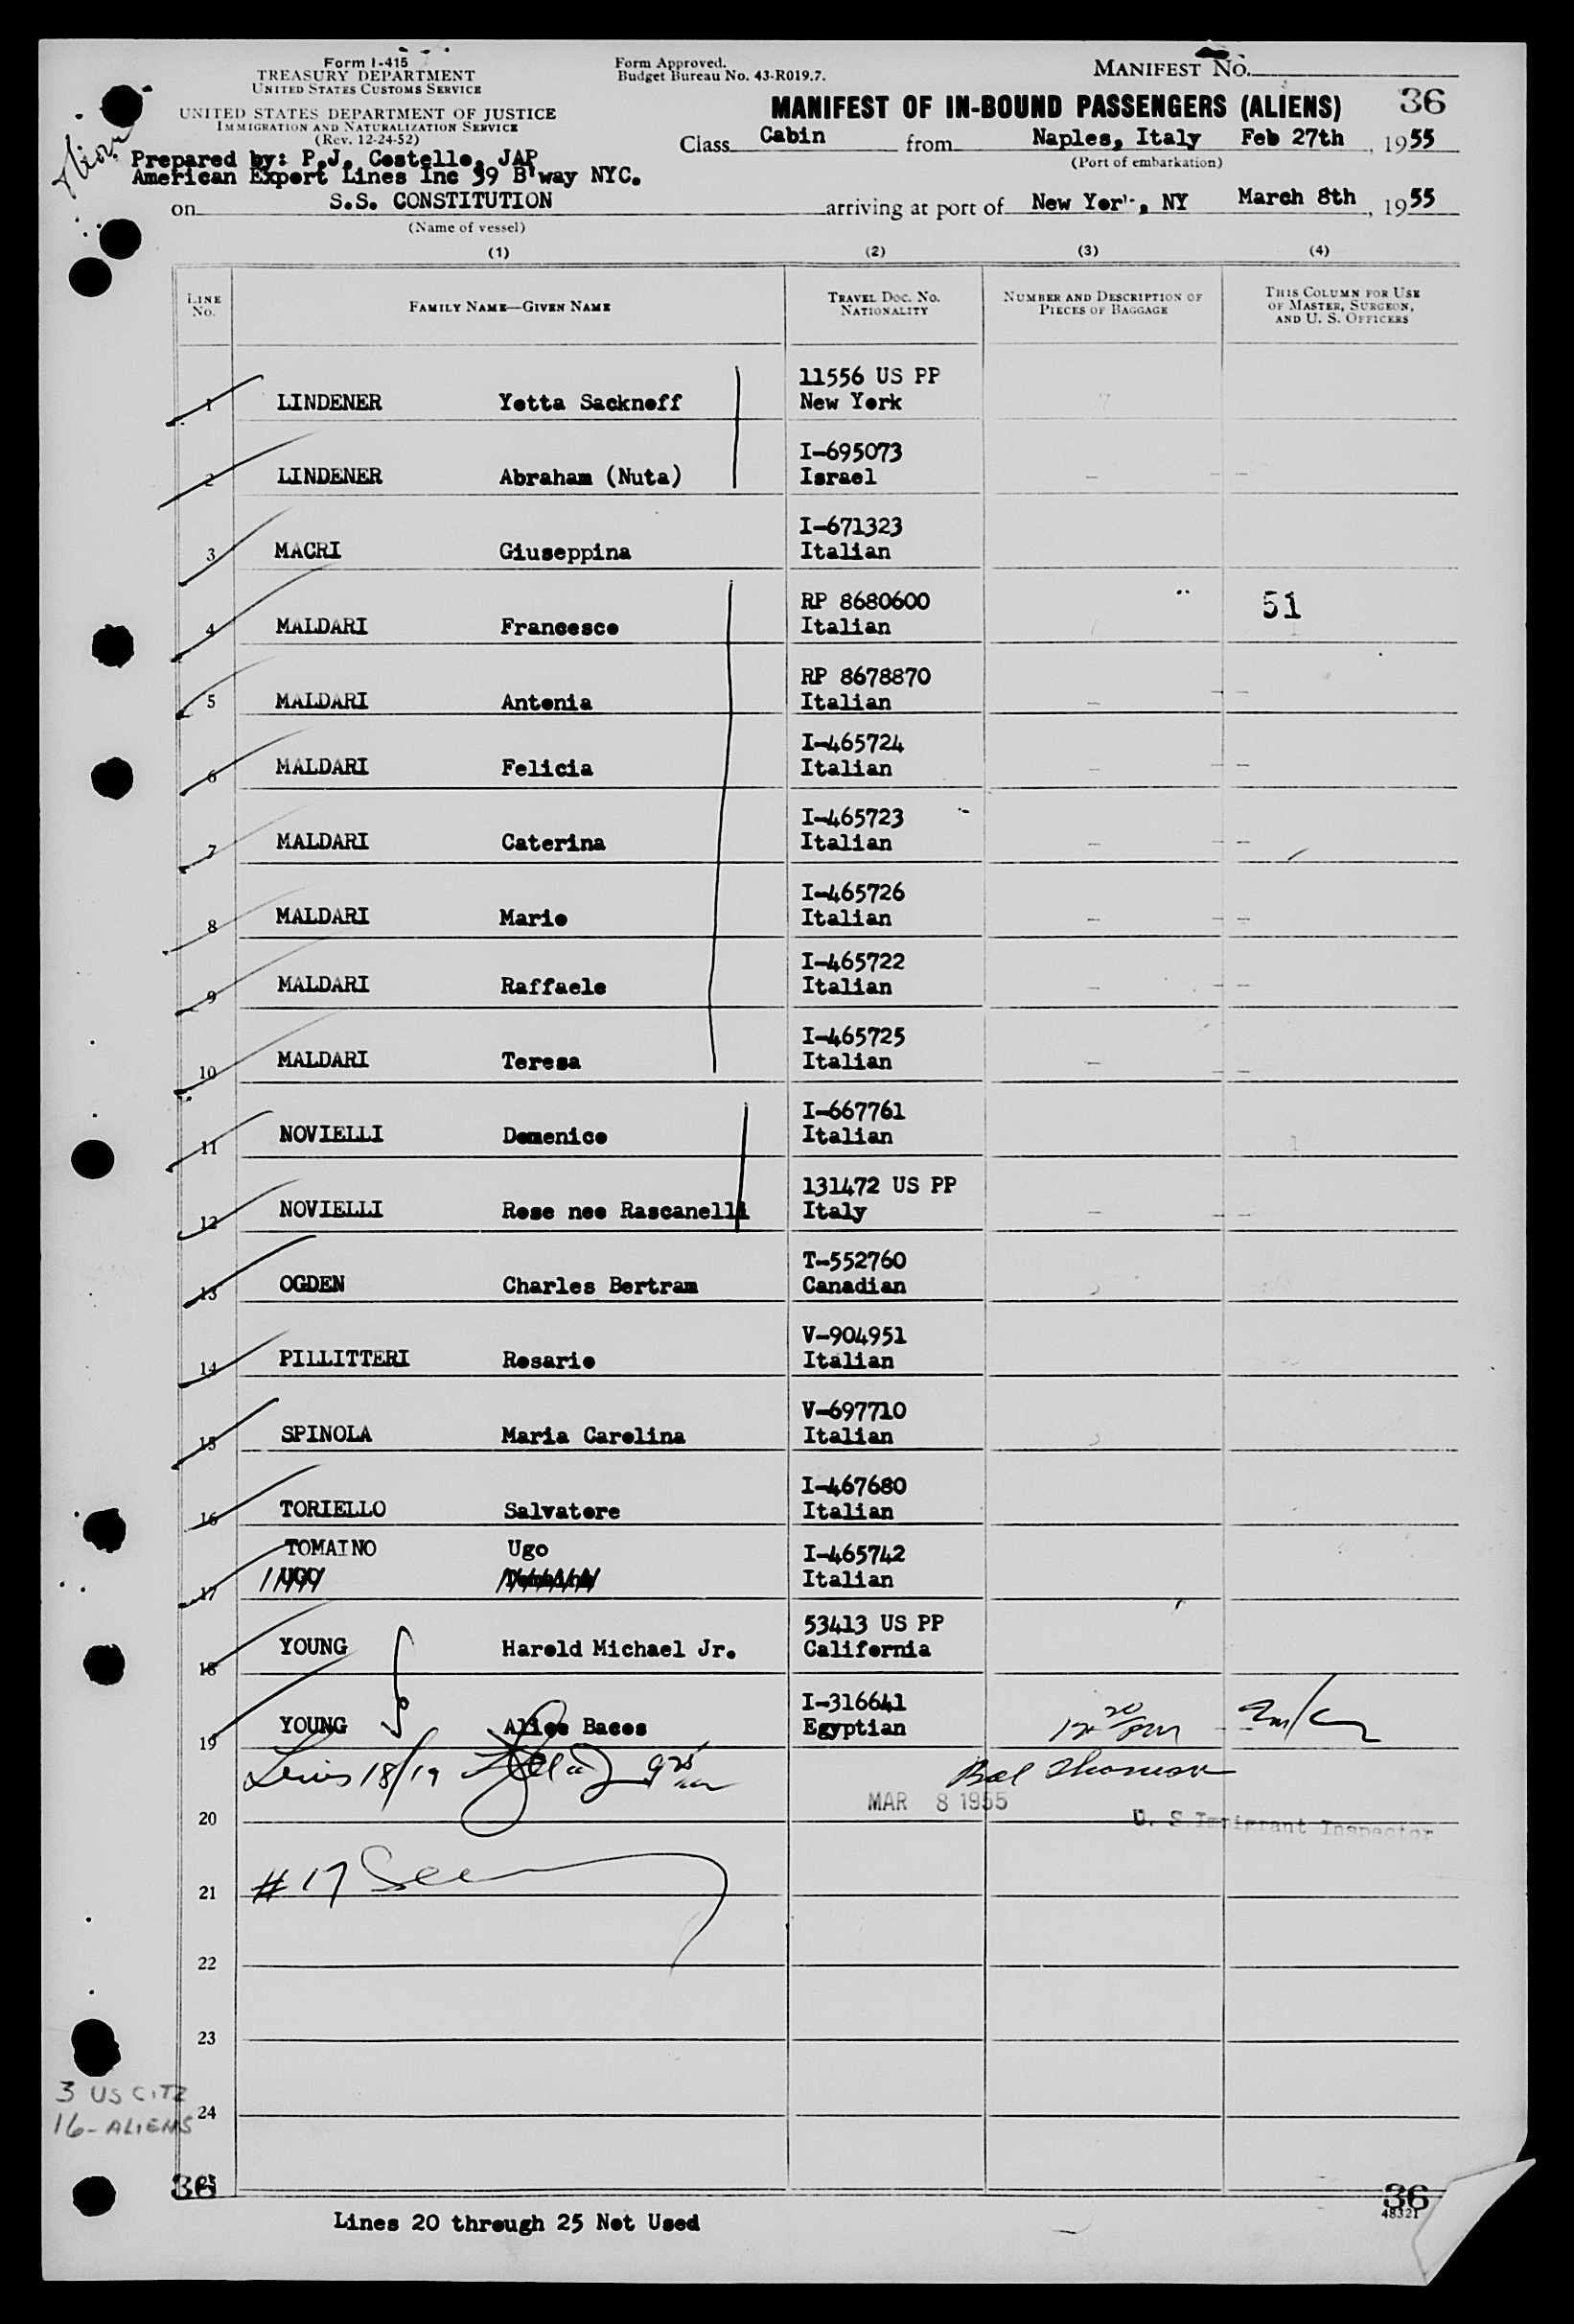 Form I-415
TREASURY DEPARTMENT
UNITED STATES CUSTOMS SERVICE
Form Approved.
Budget Bureau No. 43-R019.7.
MANIFEST NO.
UNITED STATES DEPARTMENT OF JUSTICE
IMMIGRATION AND NATURALIZATION SERVICE
(Rev. 12-24-52)
MANIFEST OF IN-BOUND PASSENGERS (ALIENS) 36
Class Cabin from Naples, Italy Feb 27th, 1955
(Port of embarkation)
Prepared by: P.J. Costello, JAP
American Export Lines Inc 39 B'way NYC.
on S.S. CONSTITUTION arriving at port of New Yor , NY March 8th, 1955
(Name of vessel)
(1) (2) (3) (4)
LINE NO. FAMILY NAME—GIVEN NAME TRAVEL DOC. NO. NATIONALITY NUMBER AND DESCRIPTION OF PIECES OF BAGGAGE THIS COLUMN FOR USE OF MASTER, SURGEON, AND U. S. OFFICERS
11556 US PP
1 LINDENER Yetta Sacknoff New York
I-695073
2 LINDENER Abraham (Nuta) Israel
I-671323
3 MACRI Giuseppina Italian
RP 8680600 51
4 MALDARI Francesco Italian
RP 8678870
5 MALDARI Antonia Italian
I-465724
6 MALDARI Felicia Italian
I-465723
7 MALDARI Caterina Italian
I-465726
8 MALDARI Mario Italian
I-465722
9 MALDARI Raffaele Italian
I-465725
10 MALDARI Teresa Italian
I-667761
11 NOVIELLI Domenico Italian
131472 US PP
12 NOVIELLI Rose nee Rascanelli Italy
T-552760
13 OGDEN Charles Bertram Canadian
V-904951
14 PILLITTERI Rosario Italian
V-697710
15 SPINOLA Maria Carolina Italian
I-467680
16 TORIELLO Salvatore Italian
TOMAINO Ugo I-465742
17 UGO Tomaino Italian
53413 US PP
18 YOUNG Harold Michael Jr. California
I-316641
19 YOUNG Alice Bacos Egyptian
18/19
MAR 8 1955
20 U. S. Immigrant Inspector
21 #17 See
22
23
3 US CITZ
24
16-ALIENS
36 25 36
48321
Lines 20 through 25 Not Used